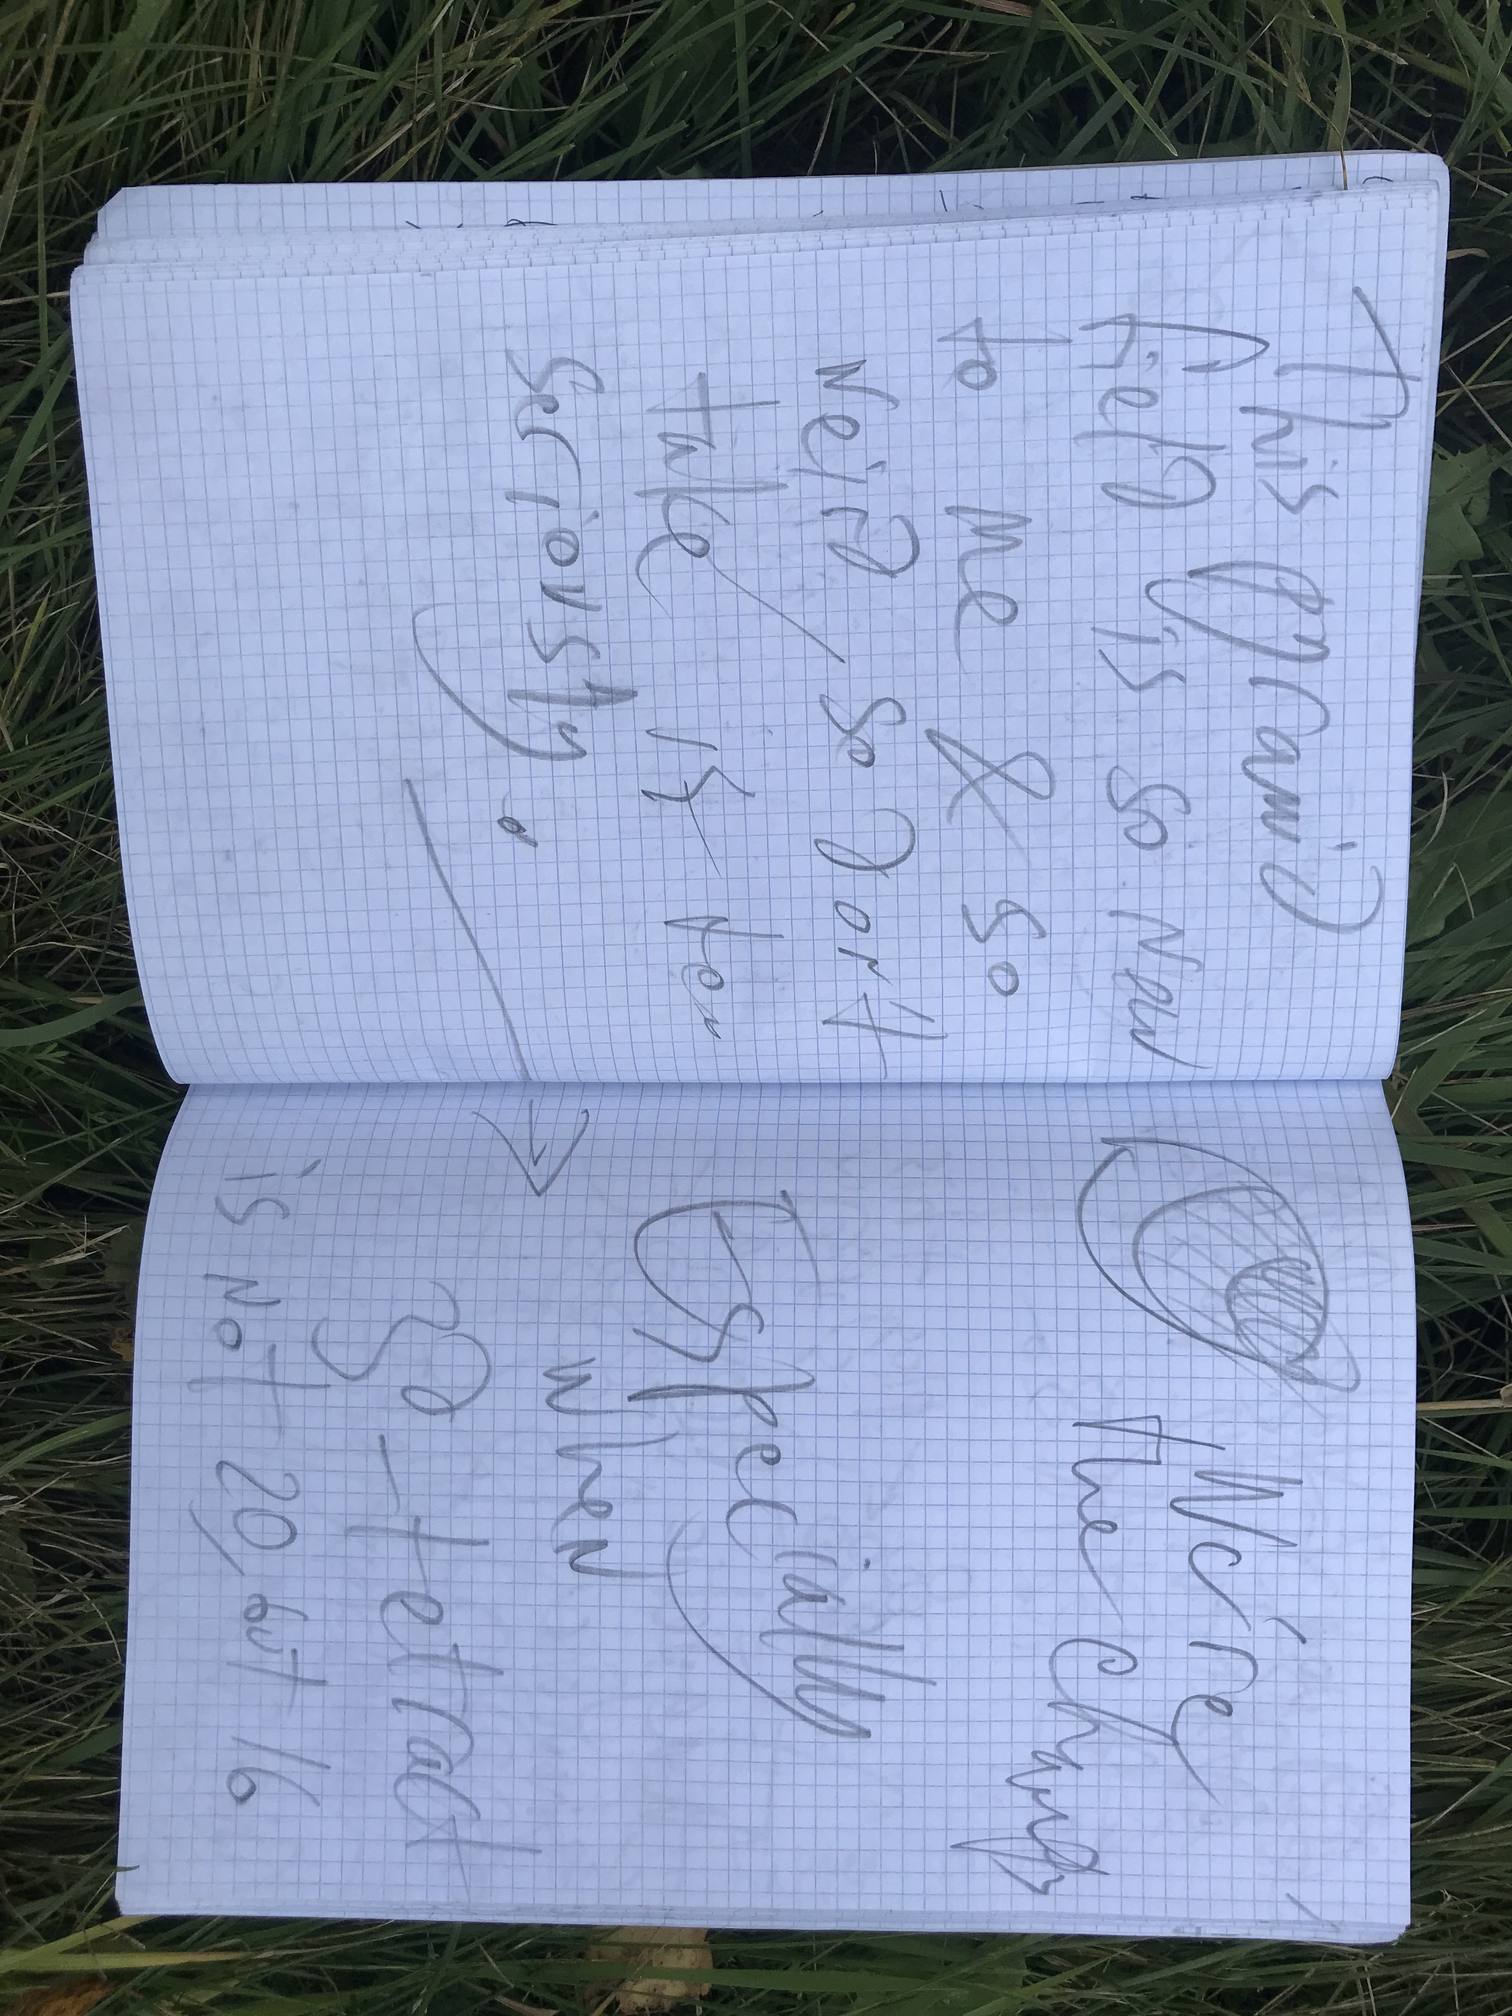 This pyramid
field is so new
to me & so
Weird so don't
take it too
seriously.
We're
the
Especially
when
30-tetract
is not 20, but 16